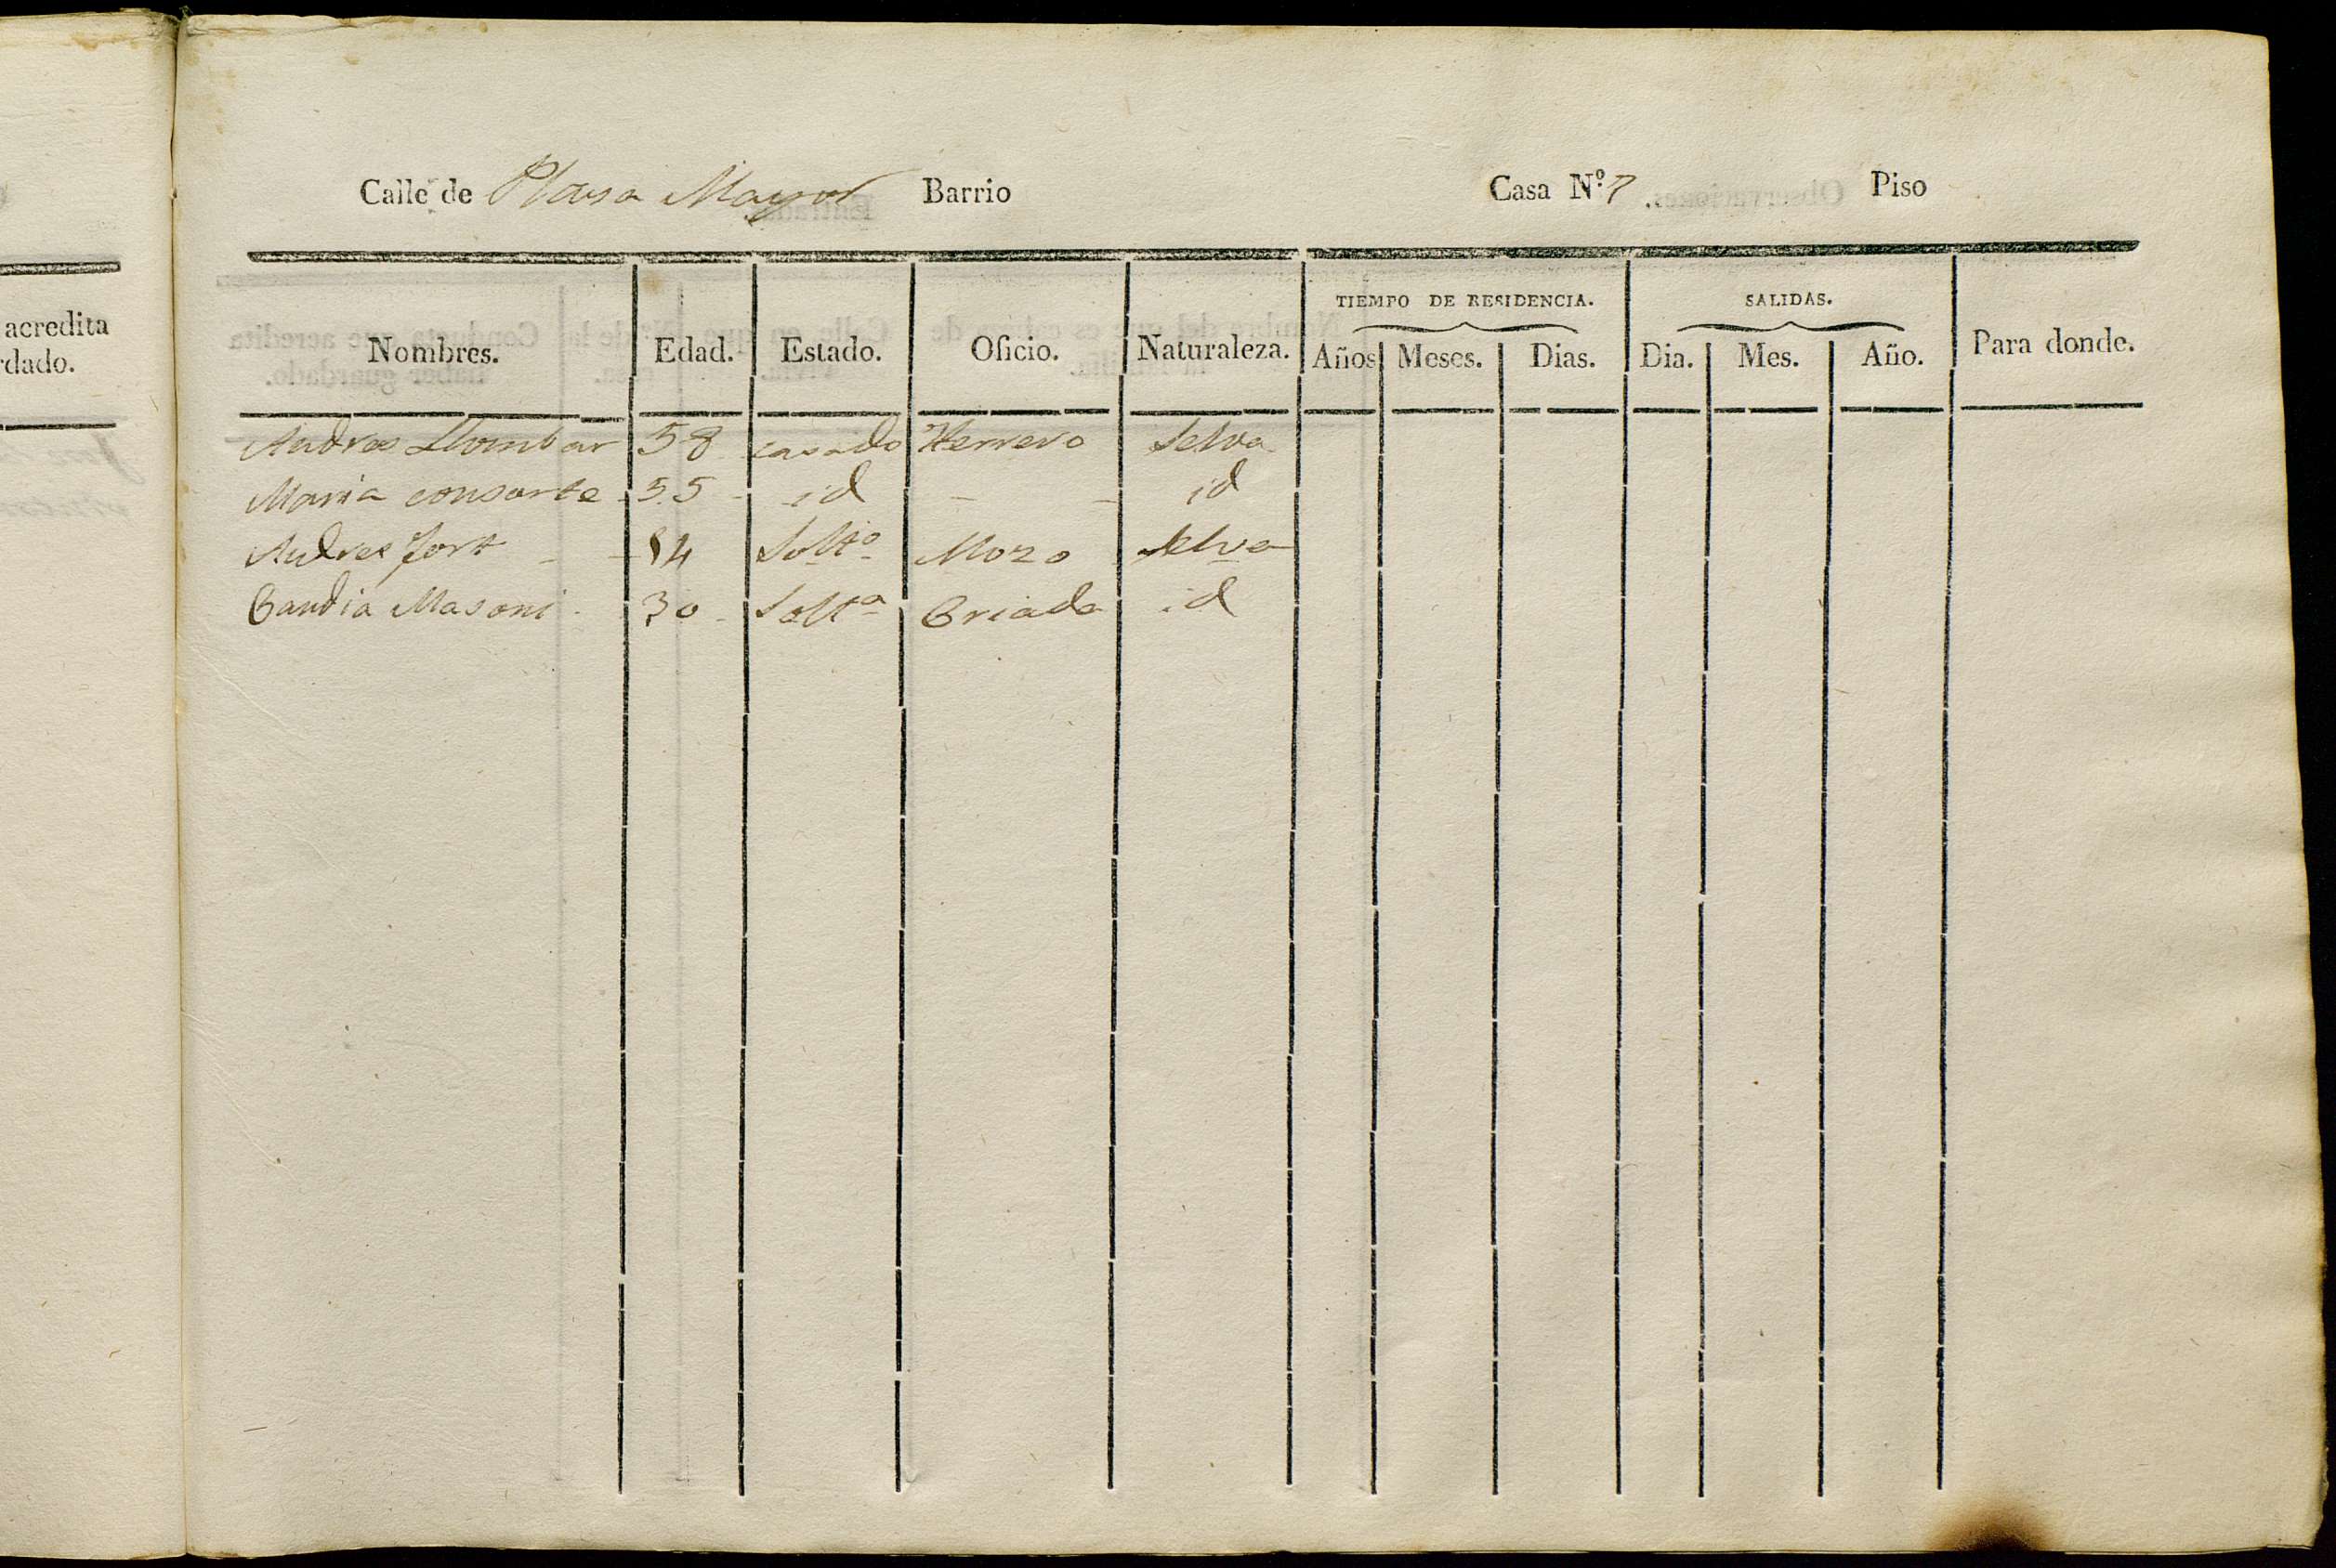 acredita
rdado.
Calle de Plasa Mayor Barrio Casa Nº 7 Piso
TIEMPO DE RESIDENCIA. SALIDAS.
Nombres. Edad. Estado. Oficio. Naturaleza. Años Meses. Dias. Dia. Mes. Año. Para donde.
Andres Llombar 58 casado Herrero Selva
Maria consorte - 55 - id - - id
Andres fort - - 14 Solt.o Mozo Selva
Candia Masoni - 30 - Solt.a Criada id